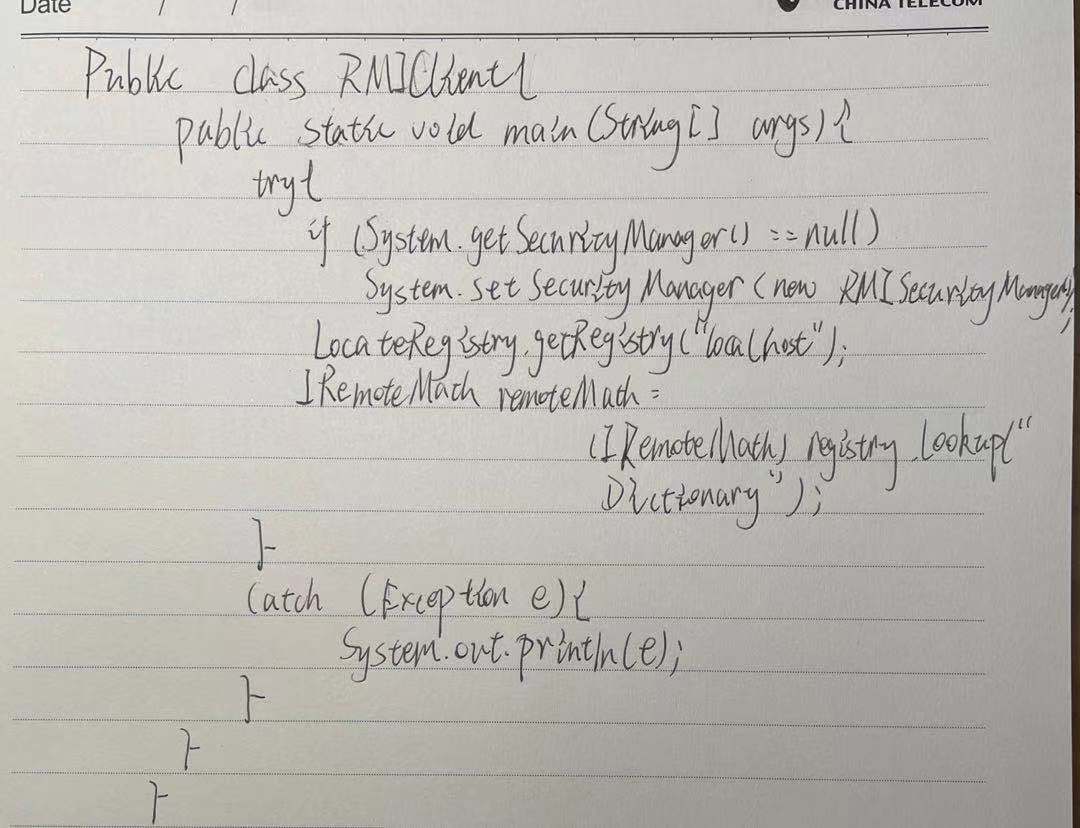 Date / /
CHINA TELECOM
Public class RMIClient{
public static void main(String[] args){
try{
if (System.getSecurityManager() ==null)
System.setSecurityManager(new RMISecurityManager());
LocateRegistry.getRegistry("localhost");
IRemoteMath remoteMath =
(IRemoteMath) registry.lookup("
Dictionary");
}
catch (Exception e){
System.out.println(e);
}
}
}